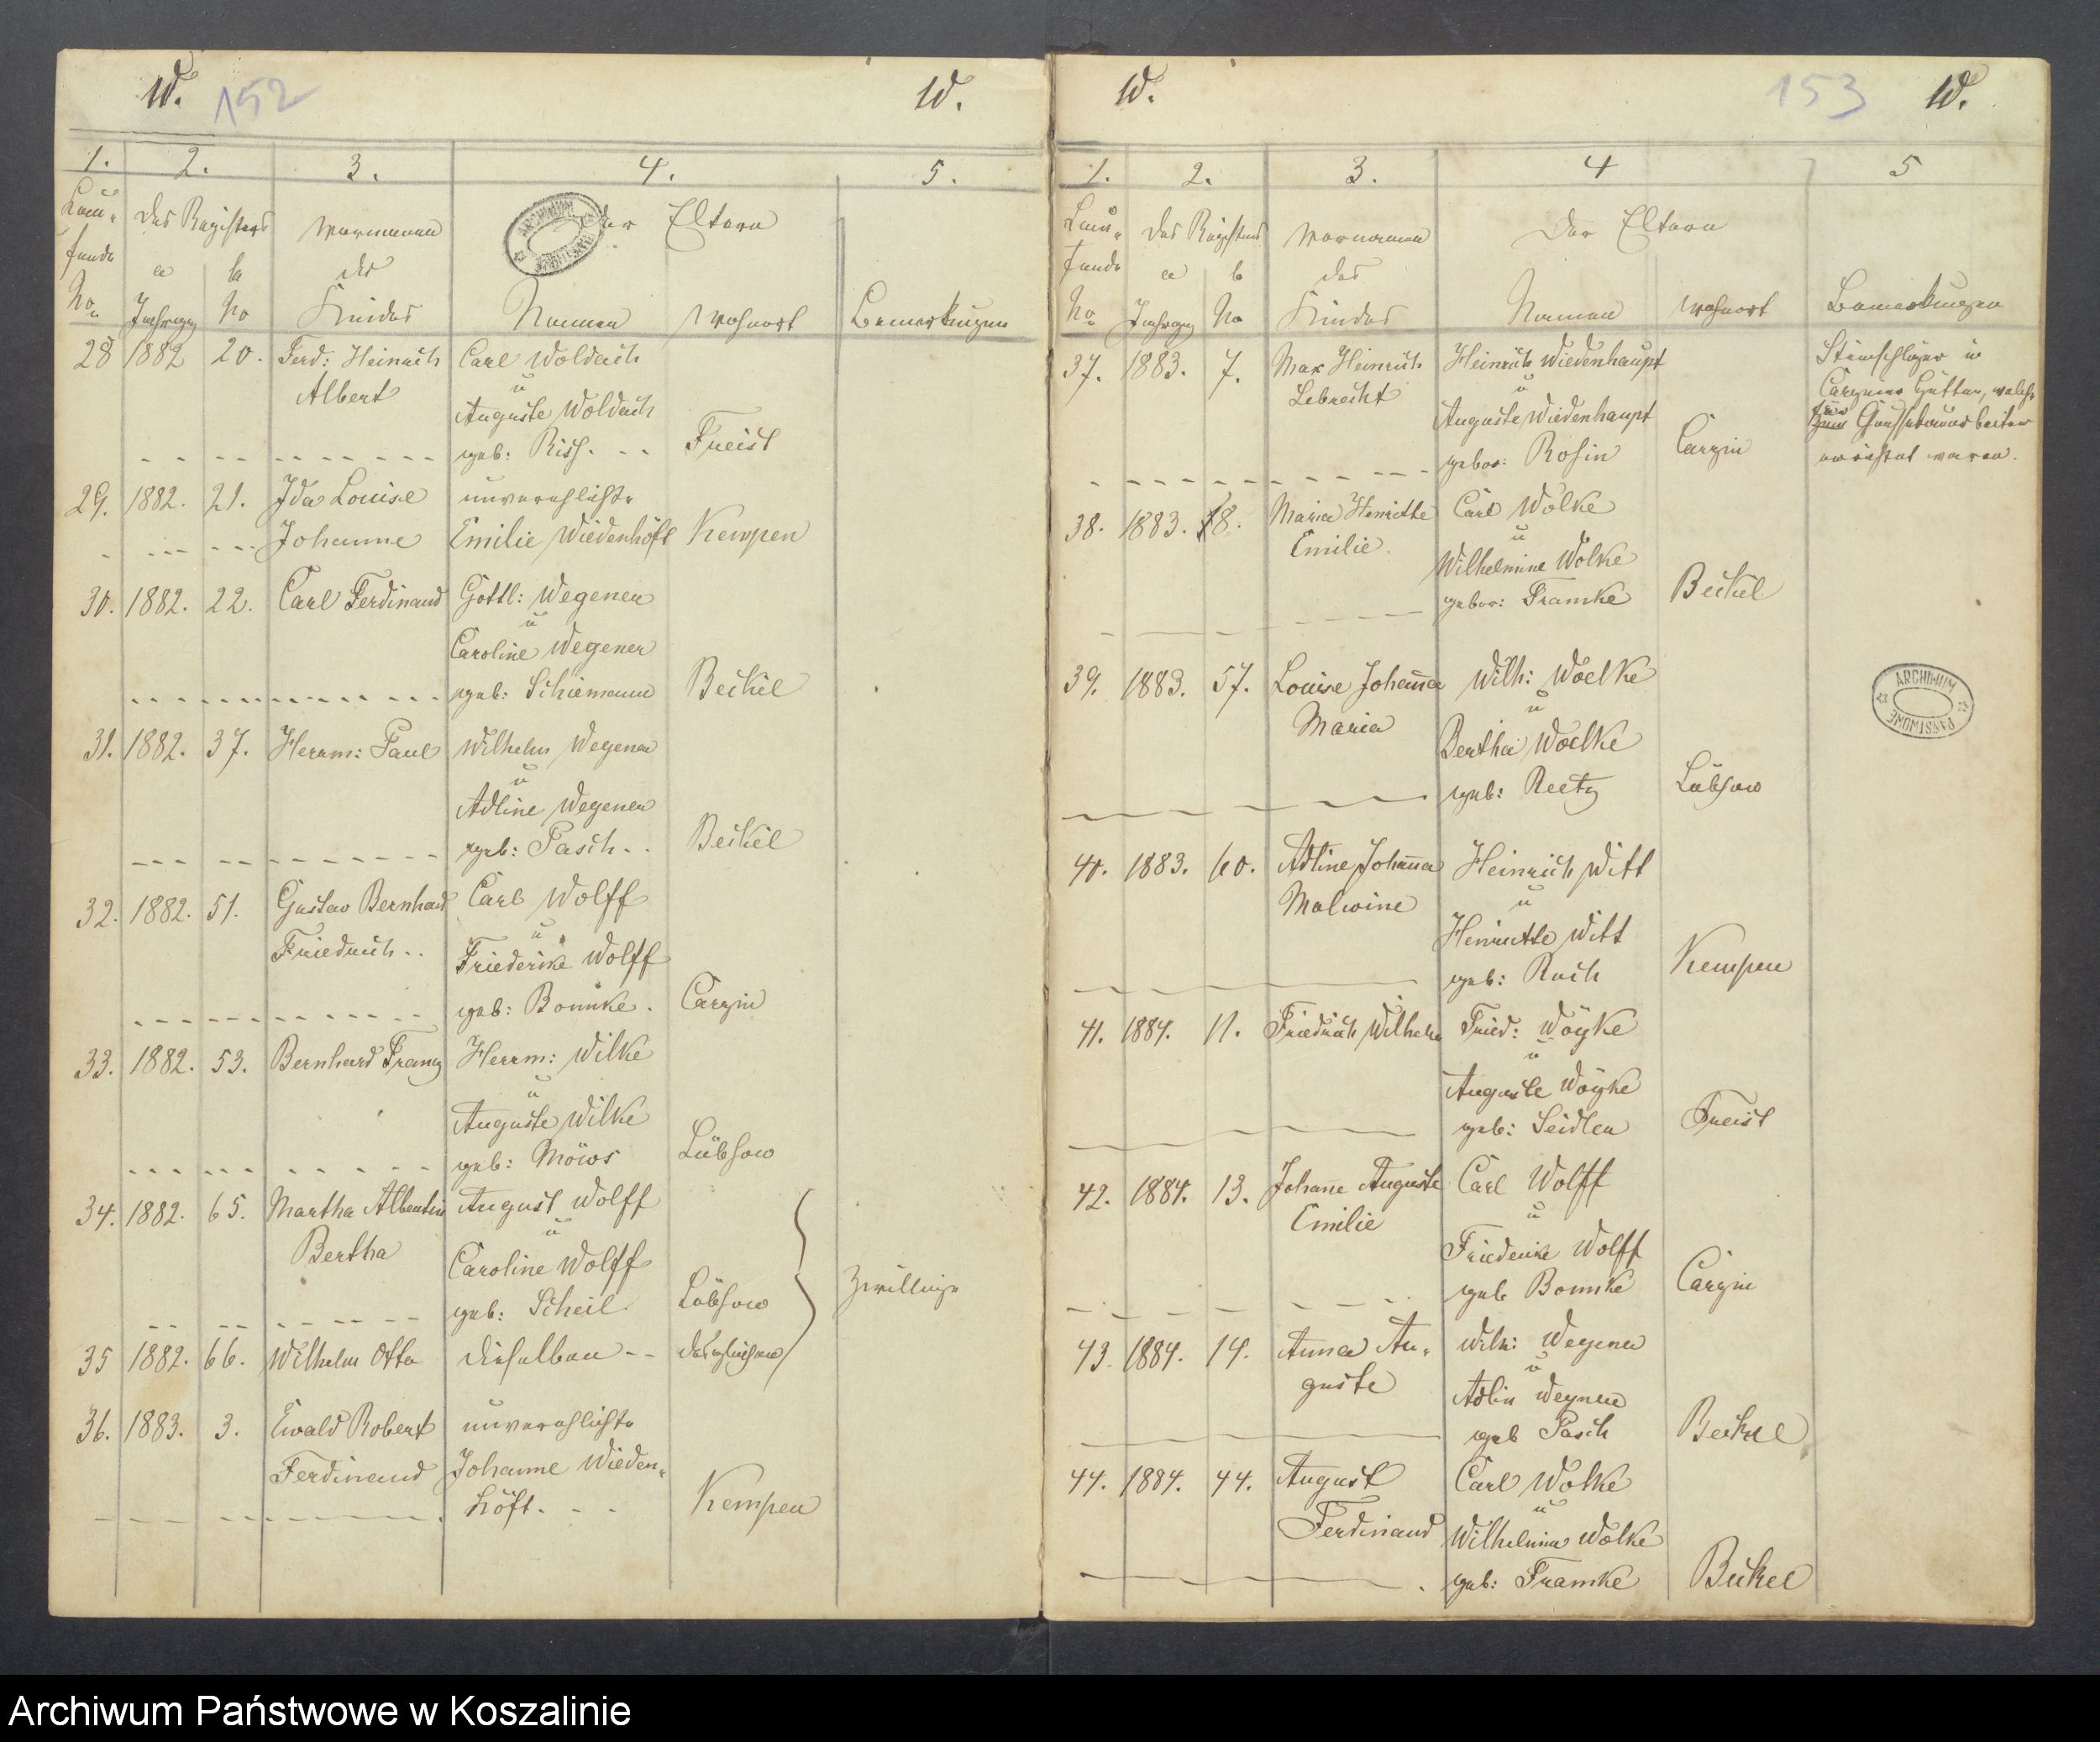 W. 152 W.
1. 2. 3. 4. 5.
Lau-
fende
No.
des Registers
a b
Jahrgg No
Vornamen
des
Kindes
der Eltern
Namen Wohnort
Bemerkungen
28 1882 20. Ferd: Heinrich Carl Woldach
Albert u
Auguste Woldach
geb: Risch. Freist
29. 1882. 21. Ida Louise unverehlichte
Johanne Emilie Wiedenhöft Kempen
30. 1882. 22. Carl Ferdinand Gottl: Wegener
u
Caroline Wegener
geb: Schiemann Beckel
31. 1882. 37. Herrm: Paul Wilhelm Wegener
u
Adline Wegener
geb: Pasch. Beckel
32. 1882. 51. Gustav Bernhard Carl Wolff
Friedrich u
Friederike Wolff
geb: Bonnke. Carzin
33. 1882. 53. Bernhard Franz Herrm: Wilke
u
Auguste Wilke
geb: Möws Lübsow
34. 1882. 65. Martha Albertin August Wolff
Bertha u
Caroline Wolff
geb: Scheil. Lübsow Zwillinge
35 1882. 66. Wilhelm Otto dieselben desgleichen
36. 1883. 3. Ewald Robert unverehlichte
Ferdinand Johanne Wieden-
höft. Kempen
W. 153 W.
1. 2. 3. 4 5
Lau-
fende
No.
des Registers
a b
Jahrgg No
Vornamen
des
Kindes
der Eltern
Namen Wohnort
Bemerkungen
37. 1883. 7. Max Heinrich Heinrich Wiedenhaupt
Lebrecht u
Auguste Wiedenhaupt
gebor: Rosin Carzin
Steinschläger in
Carziner Hütten, welche
zum Chausseebau
38. 1883. 18. Maria Henriette Carl Wolke
Emilie. u
Wilhelmine Wolke
gebor: Framke Beckel
39. 1883. 57. Louise Johanna Wilh: Woelke
Maria u
Bertha Woelke
geb: Reetz Lübsow
40. 1883. 60. Adline Johanna Heinrich Witt
Malwine u
Henriette Witt
geb: Ruch Kempen
41. 1884. 11. Friedrich Wilhelm Fried: Wöyke
u
Auguste Wöyke
geb: Seidler Freist
42. 1884. 13. Johanne Auguste Carl Wolff
Emilie u
Friederike Wolff
geb Bonnke Carzin
43. 1884. 14. Anna Au- Wilh: Wegener
guste u
Adlin Wegener
geb Pasch Beckel
44. 1884. 44. August Carl Wolke
Ferdinand u
Wilhelmina Wolke
geb: Framke Beckel
ARCHIWUM PAŃSTWOWE
ARCHIWUM PAŃSTWOWE
Archiwum Państwowe w Koszalinie